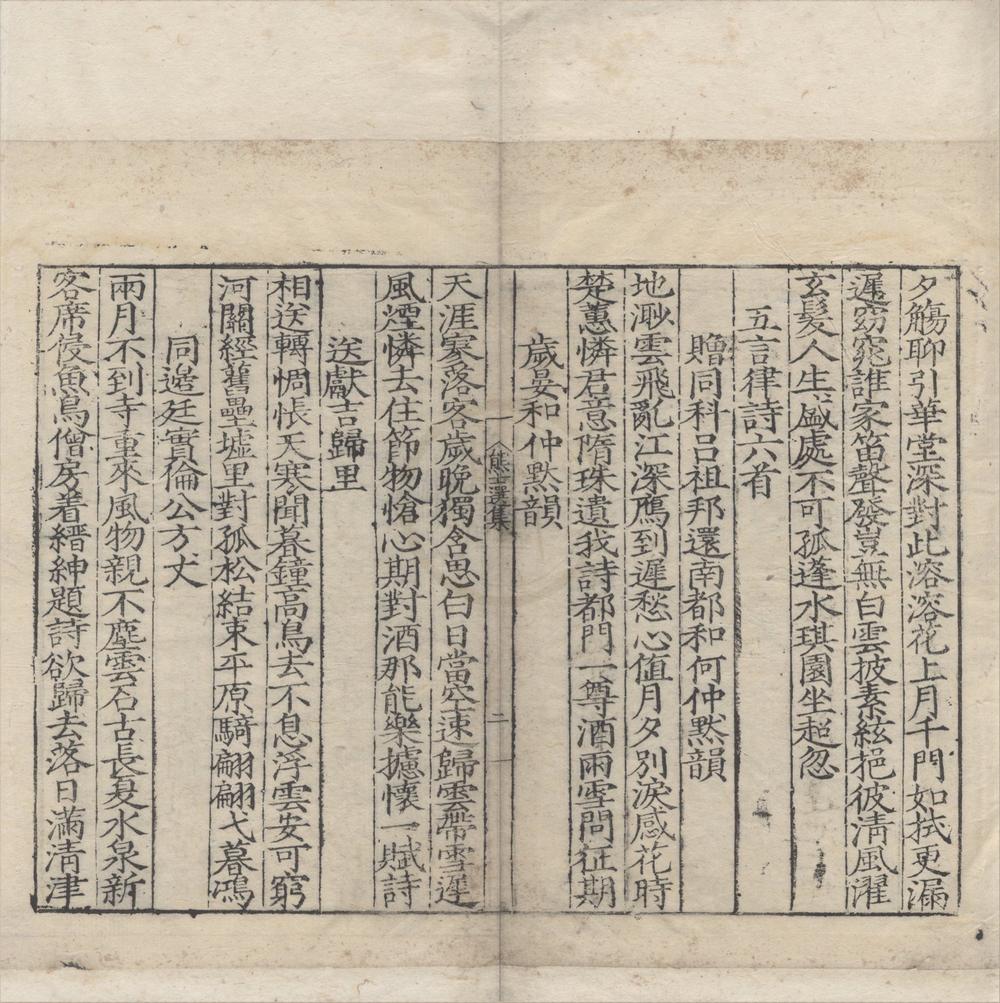 夕觴聊引華堂深對此溶溶花上月千門如拭更漏
遲窈窕誰家笛聲發豈無白雲披素絃挹彼清風濯
玄髮人生盛處不可孤蓬水琪園坐超忽
五言律詩六首
贈同科呂祖邦還南都和何仲黙韻
地渺雲飛亂江深鴈到遲愁心值月夕別淚感花時
楚蕙憐君意隋珠遺我詩都門一尊酒雨雪問征期
歲晏和仲黙韻
熊士選集
二
天涯寥落客歲晚獨含思白日當空速歸雲帶雪遲
風煙憐去住節物愴心期對酒那能樂攄懷一賦詩
送獻吉歸里
相送轉惆悵天寒聞暮鐘高鳥去不息浮雲安可窮
河關經舊壘墟里對孤松結束平原騎翩翩弋暮鴻
同邊廷實倫公方丈
兩月不到寺重來風物親不塵雲石古長夏水泉新
客席侵魚鳥僧房着縉紳題詩欲歸去落日滿清津